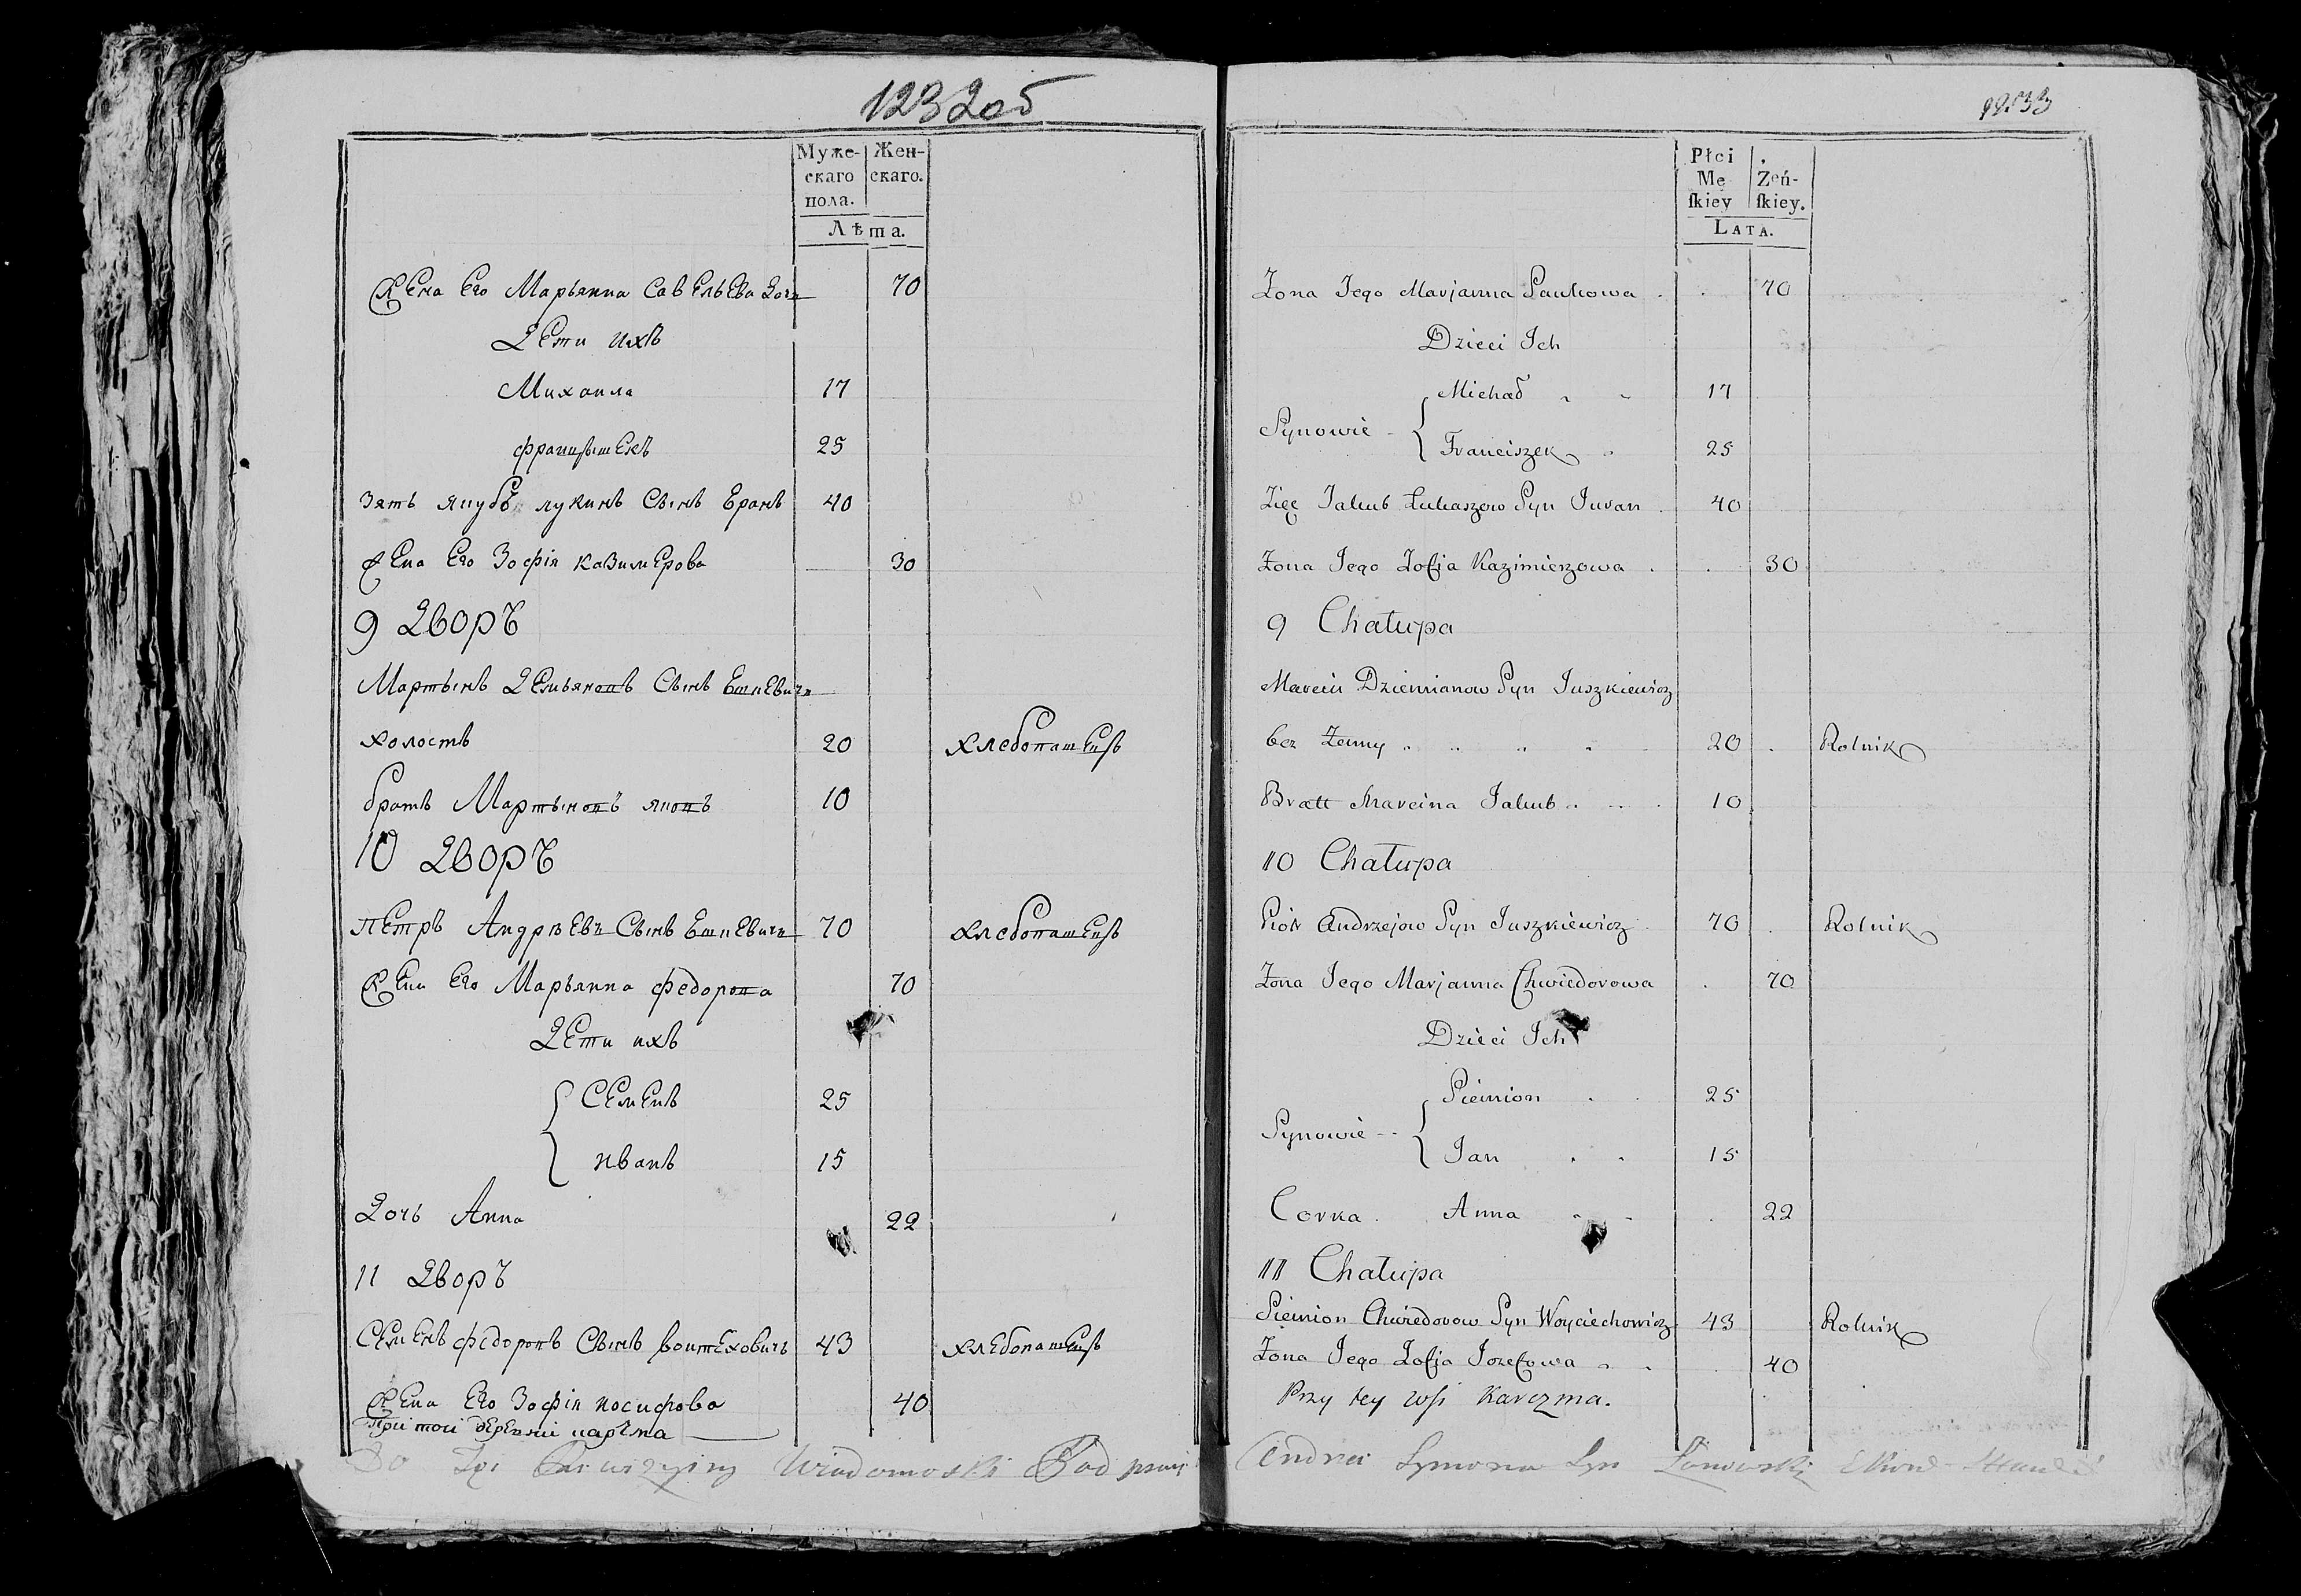 1232об
Муже-
скаго
пола.
Жен-
скаго.
Лѣта.
Жена Его Марьянна Савельева дочь 70
Дети ихъ
Михаила 17
францышекъ 25
Зять якубъ лукинъ Сынъ Еранъ 40
жена Его Зофія казимерова 30
9 Дворъ
Мартынъ Демьяновъ Сынъ Ешкевичь
холостъ 20 хлебопашецъ
братъ Мартыновъ яковъ 10
10 Дворъ
Петръ Андрѣевъ Сынъ Ешкевичь 70 хлебопашецъ
Жена Его Марьянна федорова 70
Дети ихъ
Семенъ 25
иванъ 15
Дочь Анна 22
11 Дворъ
Семенъ федоровъ Сынъ воитеховичь 43 хлебопашецъ
Жена Его Зофія иосифова 40
При тои деревни карчма
Wiadomoski Pod
1233
Płci
Mę
skiey
Żeń-
skiey.
LATA.
Żona Jego Marjanna Saukowa 70
Dzieci Ich
Synowie Michał 17
Franciszek 25
Zięć Jakub Łukaszow Syn Juran 40
Żona Jego Zofja Kazimierzowa 30
9 Chałupa
Marcin Dziemianow Syn Juszkiewicz
bez Żenny 20 Rolnik
Bratt Marcina Jakub 10
10 Chałupa
Piotr Andrzejow Syn Juszkiewicz 70 Rolnik
Żona Jego Marjanna Chwiedorowa 70
Dzieci Ich
Synowie Siemion 25
Jan 15
Corka Anna 22
11 Chałupa
Siemion Chwiedorow Syn Woyciechowicz 43 Rolnik
Żona Jego Zofja Jozefowa 40
Przy tey wsi Karczma.
Andrei Symona Syn